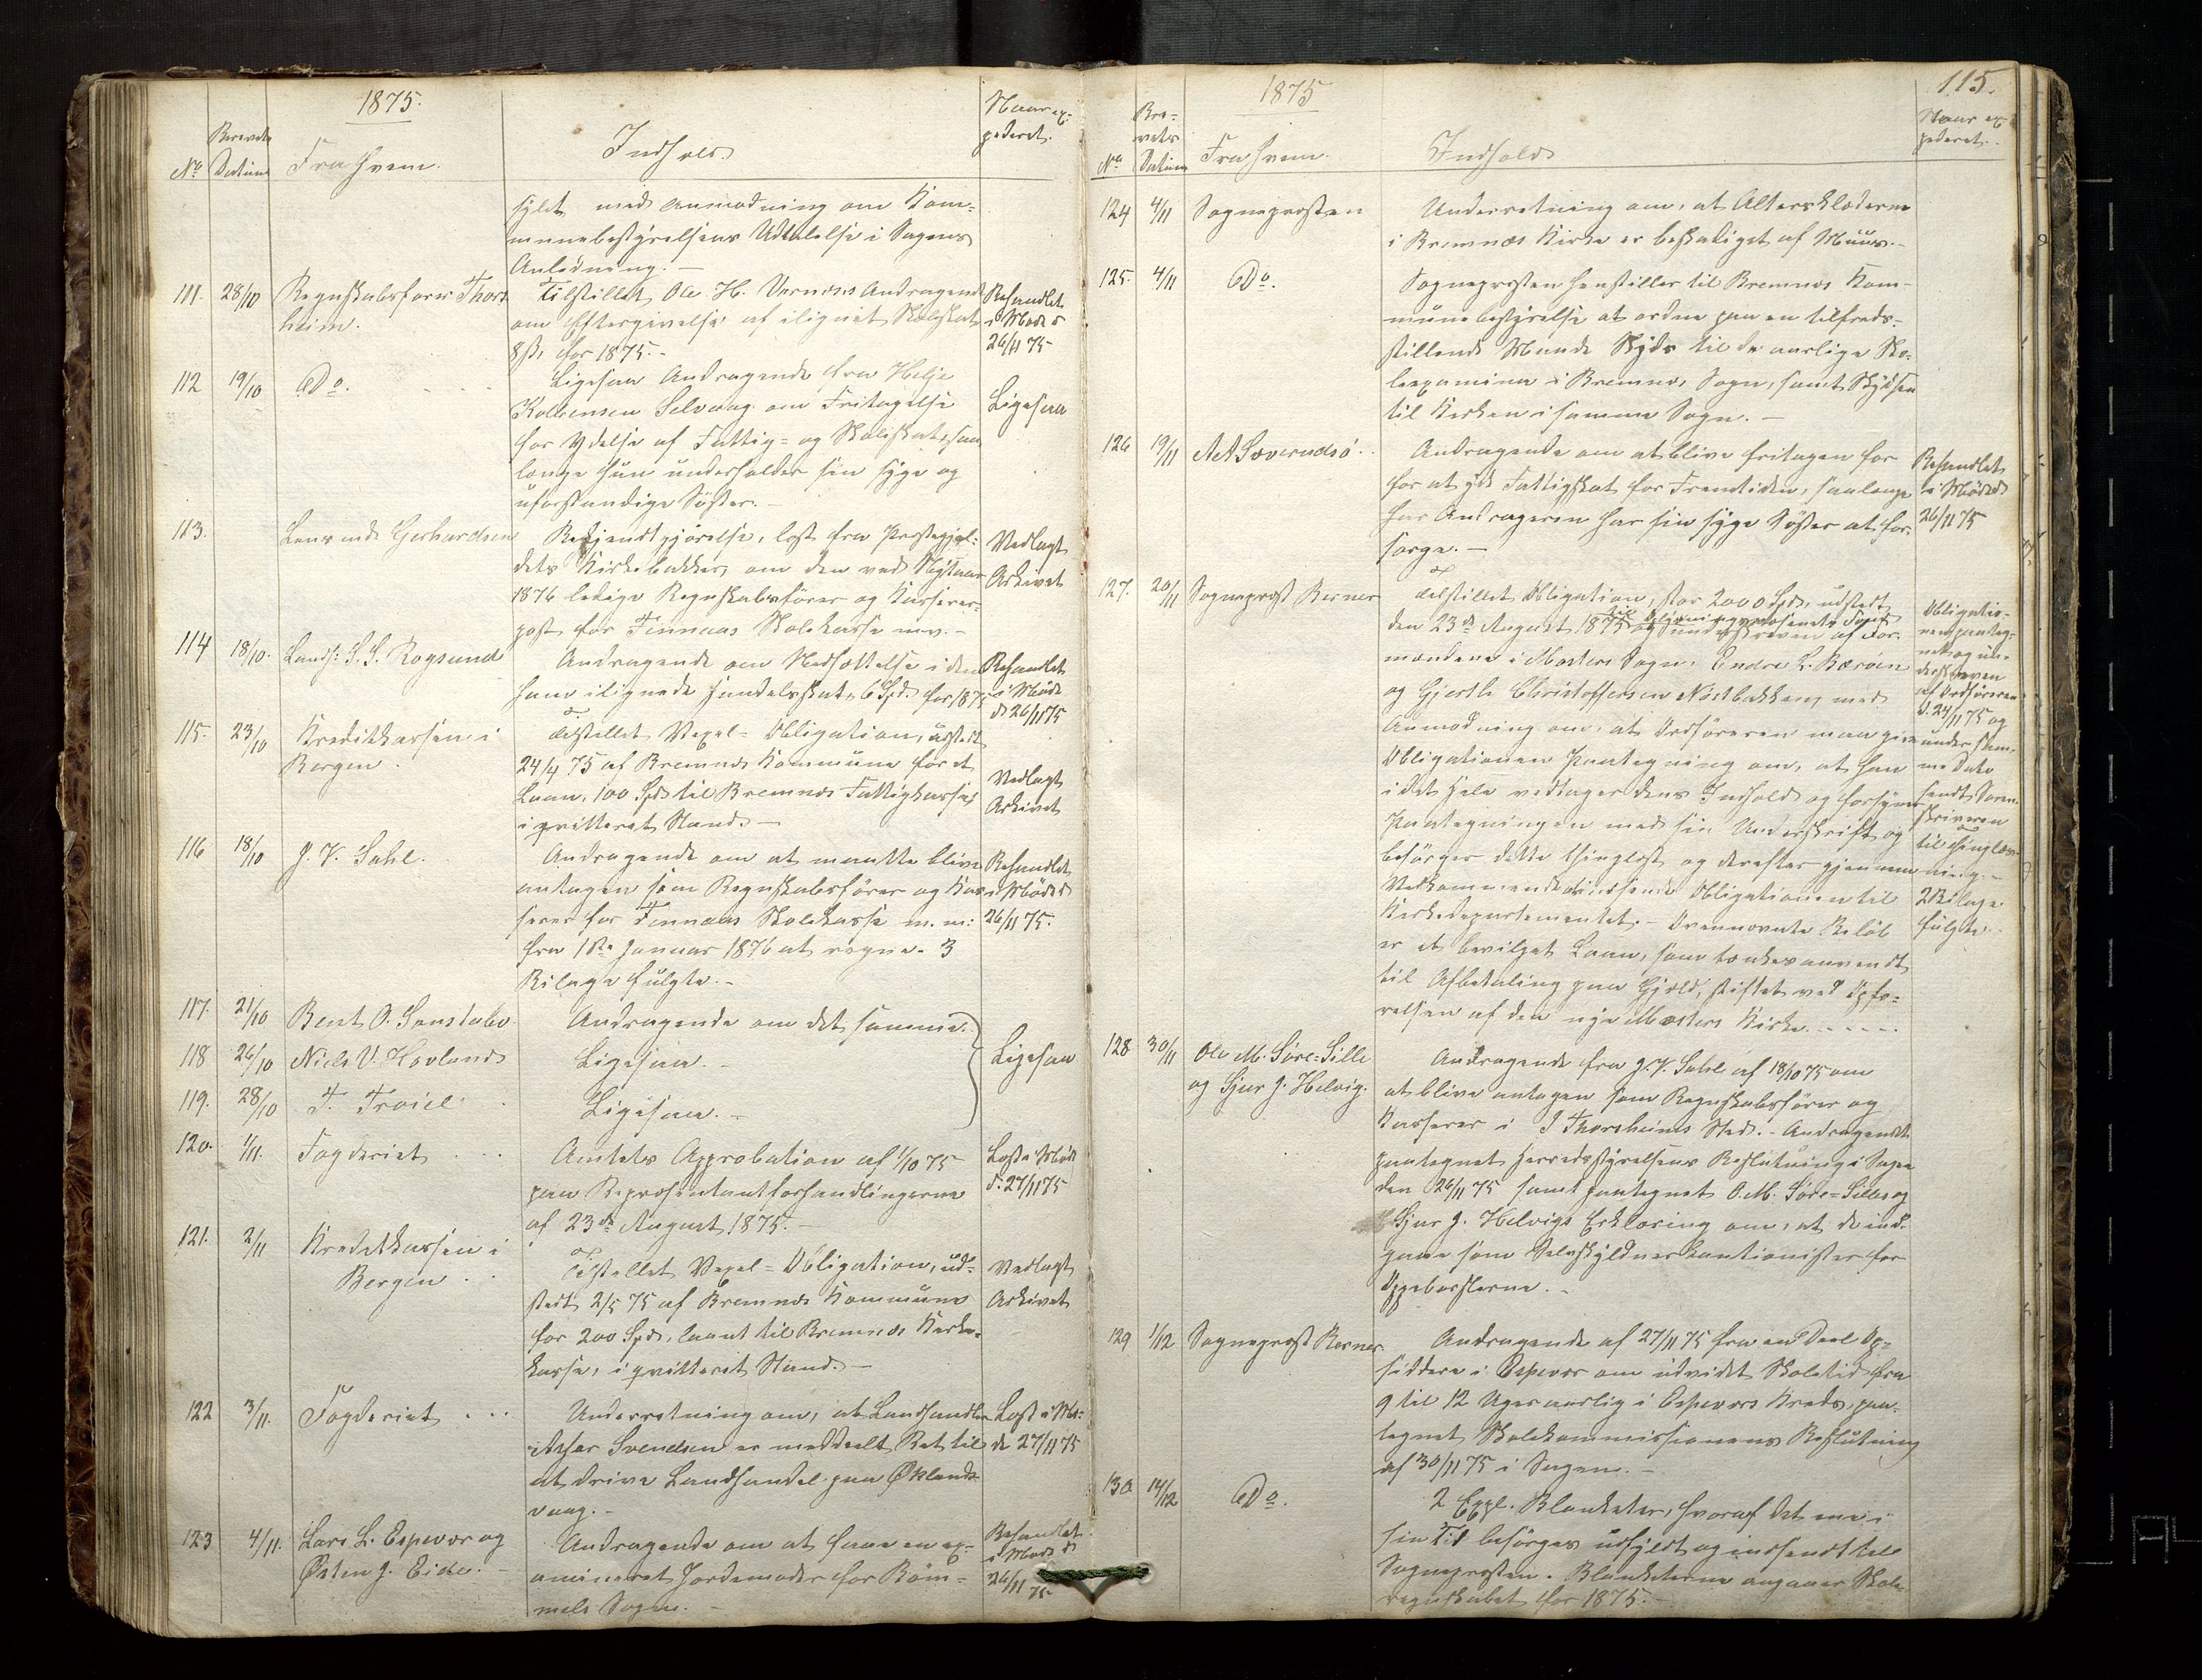 1875.
No
Brevets Datum
Fra hvem.
Indhold.
Naar ex-
pederet.
fylet med Anmodning om Kom-
munebestyrelsens Udtalelse i Sagens
Anledning. —
111. 28/10 Regnskabsfører Thors
heim.
Tilstillet Ole H. Vernæs Andragende
om Eftergivelse af ilignet Skolskat
8 ß, for 1875. -
Behandlet
i Mødet
26/11 75
112 19/10 Do.
Ligesaa Andragende fra Helje
Kolbensen Selvaag om Fritagelse
for Ydelse af Fattig- og Skoleskat, saa
længe hun underholder sin syge og
uforstandige Søster. -
Ligesaa
113. Lensmd. Gerhardsen
Bekjendtgjørelse, læst fra Præstegjæl-
dets Kirkebakker, om den ved Nytaar
1876 ledige Regnskabsfører og Kasserer-
post for Finnaas Skolekasse m.v. -
Vedlagt
Arkivet
114 18/10. Landh: S. S. Rogsund
Andragende om Nedsættelse i den
ham ilignede Handelsskat, 6 Spd. for 1875
Behandlet
i Møde
d 26/11 75
115. 23/10 Kreditkassen i
Bergen.
Tilstillet Vexel-Obligation, udstedt
24/4 75 af Bremnæs Kommune for et
Laan, 100 Spd. til Bremnæs Fattigkasse,
i qvitteret Stand. —
Vedlagt
Arkivet
116 18/10 J. V. Sahl.
Andragende om at maatte blive
antagen som Regnskabsfører og Kas-
serer for Finnaas Skolekasse m. m:
fra 1ste Januar 1876 at regne. 3
Bilage fulgte. -
Behandlet
i Mødet
26/11 75.
117. 21/10 Bent O. Sønstabø
Andragende om det samme.
118 26/10 Niels V. Hovland
Ligesaa. -
Ligesaa
119. 28/10 T. Troiel
Ligesaa. -
120. 1/11. Fogderiet
Amtets Approbation af 1/10 75
paa Repræsentantforhandlingerne
af 23de August 1875. -
Læst i Møde
d. 27/11 75
121. 2/11 Kreditkassen i
Bergen
Tilstillet Vexel-Obligation, ud-
stedt 2/5 75 af Bremnæs Kommune
for 200 Spd, laant til Bremnæs Kirke-
kasse, i qvitteret Stand. —
Vedlagt
Arkivet
122 3/11. Fogderiet
Underretning om, at Landhandler
Asser Svendsen er meddeelt Ret til
at drive Landhandel paa Øklands-
vaag. -
Læst i Mø-
de 27/11 75
123 4/11. Lars L. Espevær og
Østen J. Eide. -
Andragende om at faae en ex-
amineret Jordemoder for Bøm-
mels Sogn. -
Behandlet
i Møde d
26/11 75
115.
1875
No
Bre-
vets
Datum
Fra hvem.
Indhold
Naar ex
pederet.
124 4/11 Sogneprosten
Underretning om, at Altersklæderne
i Bremnæs Kirke er beskadiget af Muus. -
125. 4/11 Do.
Sogneprosten henstiller til Bremnæs Kom-
munebestyrelse at ordne paa en tilfreds-
stillende Maade Skyds til de aarlige Sko-
leexamina i Bremnæs Sogn, samt Skydsen
til Kirken i samme Sogn. —
126 19/11 A A Sæverudsø
Andragende om at blive fritagen for
for at yde Fattigskat for Fremtiden, saalænge
har Andrageren har sin syge Søster at for-
sørge. —
Behandlet
i Møde d
26/11 75
127. 20/11 Sogneprost Berner
Tilstillet Obligation, stor 2000 Spd, udstedt
til Oplysningsvæsenets Fond
den 23de August 1875 og underskreven af For-
mændene i Mosters Sogn, Endre L. Bærøen
og Gjerth Christoffersen Nøstbakken, med
Anmodning om, at Ordføreren maa give
Obligationen Paategning om, at han
i det Hele vedtager dens Indhold og forsyner
Paategningen med sin Underskrift og
besørger dette thinglæst, og derefter gjennem
Vedkommende indsende Obligationen til
Kirkedepartementet. - Ovennævnte Beløb
er et bevilget Laan, som tænkes anvendt
til Afbetaling paa Gjæld, stiftet ved Opfø-
relsen af den nye Mosters Kirke. - - - - -
Obligatio-
nen paateg-
net og un-
derskreven
af Ordføreren
d. 24/11 75 og
under sam-
me Dato
sendt Soren-
skriveren
til Thinglæs-
ning. -
2 Bilage
fulgte.
128 30/11 Ole M. Søre-Sille
og Sjur J. Helvig.
Andragende fra J. V. Sahl af 18/10 75 om
at blive antagen som Regnskabsfører og
Kasserer i I Thorsheims Sted. - Andragendet
paategnet Herredsstyrelsens Beslutning i Sagen
den 26/11 75 samt paategnet O. M. Søre-Silles og
Sjur J. Helvigs Erklæring om, at de ind-
gaae som Selvskyldnerkautionister for
Oppebørslerne. -
129 1/12 Sogneprost Berner
Andragende af 27/11 75 fra en Deel Op-
siddere i Espevær om udvidet Skoletid fra
9 til 12 Uger aarlig i Espeværs Kreds, paa-
tegnet Skolekommissionens Beslutning
af 30/11 75 i Sagen. -
130 14/12 Do.
2 Expl. Blanketer, hvoraf det ene i
sin Tid besørges udfyldt og indsendt til
Sogneprosten. Blanketerne angaaer Skole-
regnskabet for 1875. -